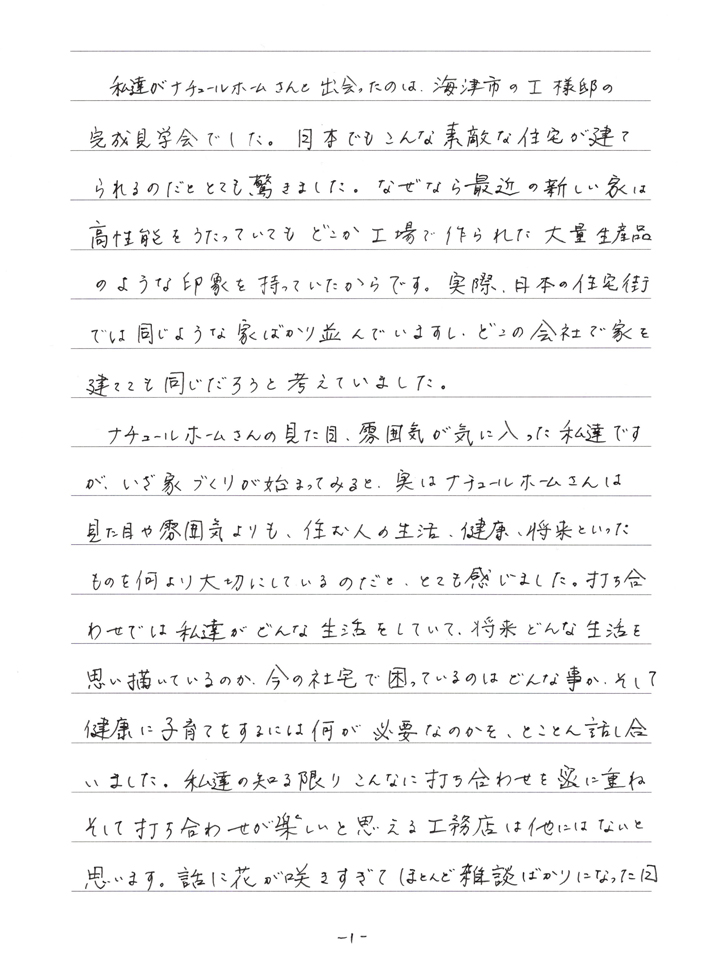 私達がナチュールホームさんと出会ったのは、海津市のI様邸の
完成見学会でした。日本でもこんな素敵な住宅が建て
られるのだととても驚きました。なぜなら最近の新しい家は
高性能をうたっていてもどこか工場で作られた大量生産品
のような印象を持っていたからです。実際、日本の住宅街
では同じような家ばかり並んでいますし、どこの会社で家を
建てても同じだろうと考えていました。
ナチュールホームさんの見た目、雰囲気が気に入った私達です
が、いざ家づくりが始まってみると、実はナチュールホームさんは
見た目や雰囲気よりも、住む人の生活、健康、将来といった
ものを何より大切にしているのだと、とても感じました。打ち合
わせでは私達がどんな生活をしていて、将来どんな生活を
思い描いているのか、今の社宅で困っているのはどんな事か、そして
健康に子育てをするには何が必要なのかを、とことん話し合
いました。私達の知る限りこんなに打ち合わせを密に重ね
そして打ち合わせが楽しいと思える工務店は他にはないと
思います。話に花が咲きすぎてほとんど雑談ばかりになった回
-1-